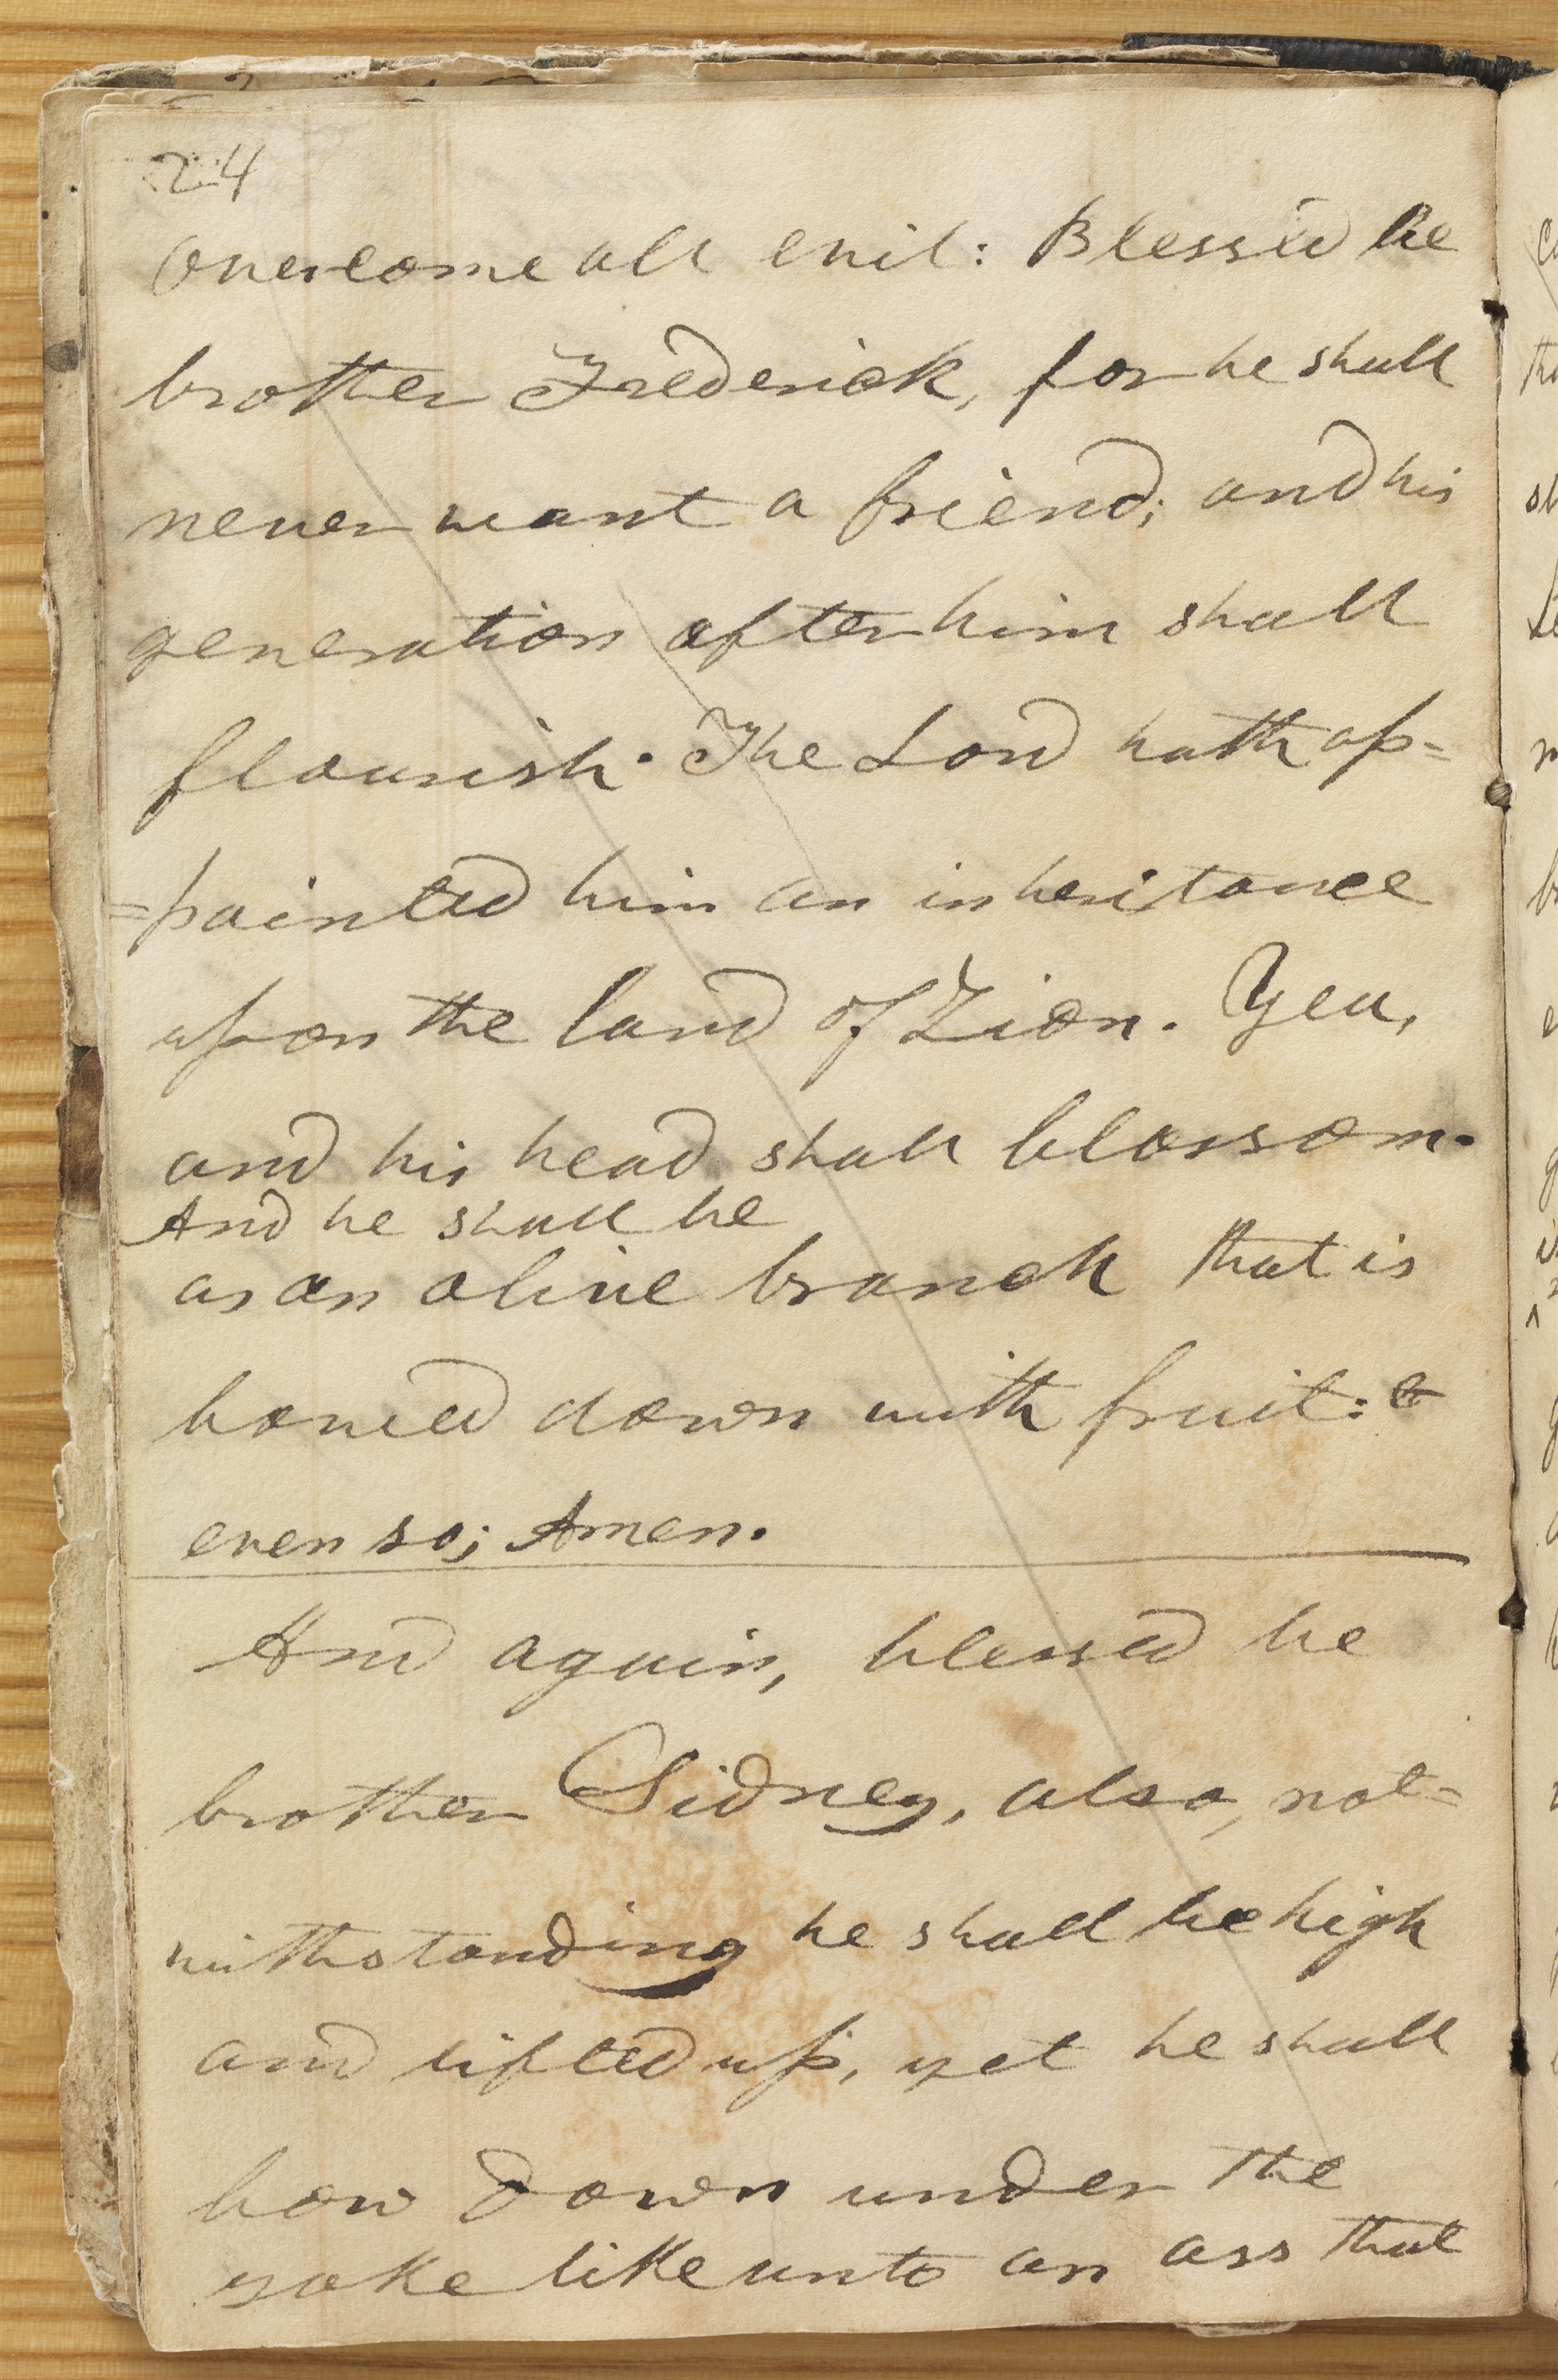 24
overcome all evil: Blessed be
brother Frederick, for he shall
never want a friend; and his
generation after him shall
flourish. The Lord hath ap=
=pointed him an inheritance
upon the land of Zion. Yea,
and his head shall blossom.
And he shall be
as an olive branch that is
bowed down with fruit: &
even so; Amen.
And again, blessed be
brother Sidney, also, not=
withstanding he shall be high
and lifted up, yet he shall
bow down under the
yoke like unto an ass that